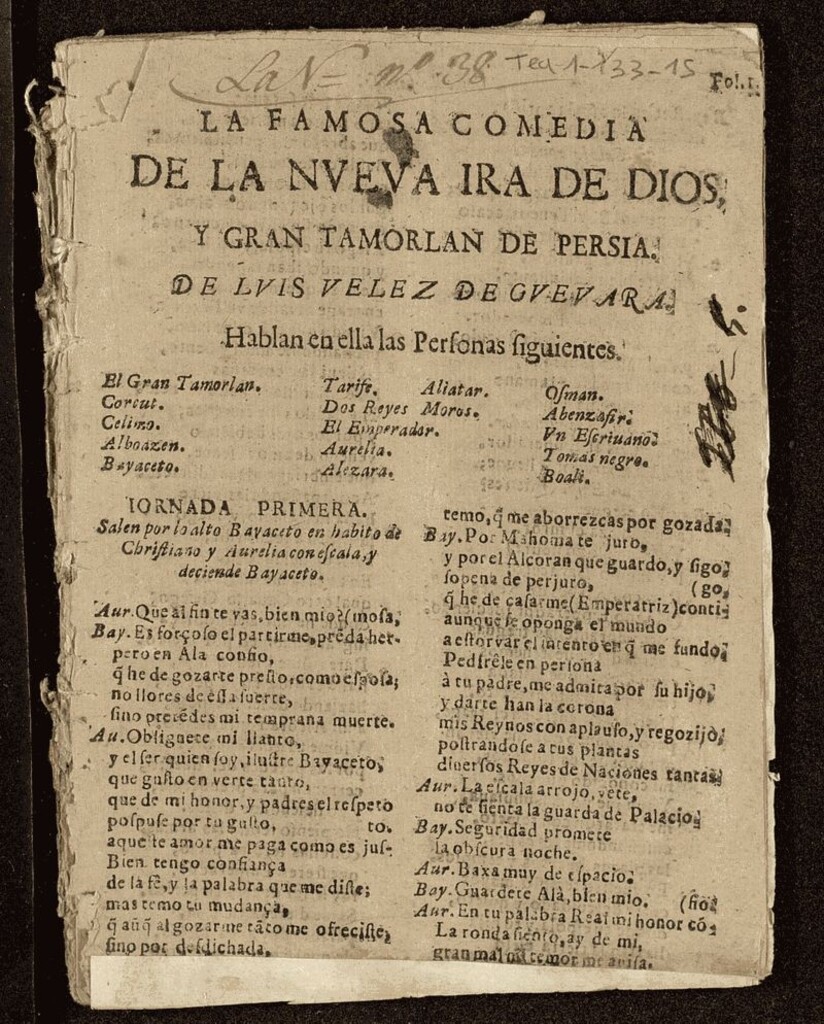 La N= nº. 38 Tea 1-133-15
Fol.1.
LA FAMOSA COMEDIA
DE LA NVEVA IRA DE DIOS,
Y GRAN TAMORLAN DE PERSIA.
DE LVIS VELEZ DE GVEVARA.
Hablan en ella las Perſonas ſiguientes.
El Gran Tamorlan.
Corcut.
Celimo.
Alboazen.
Bayaceto.
Tarife. Aliatar.
Dos Reyes Moros.
El Emperador.
Aurelia.
Alezara.
Oſman.
Abenzafir.
Vn Eſcriuano.
Tomas negro.
Boali.
IORNADA PRIMERA.
Salen por lo alto Bayaceto en habito de
Chriſtiano y Aurelia con eſcala, y
deciende Bayaceto.
Aur. Que al fin te vas, bien mio? (moſa,
Bay. Es forçoſo el partirme, prẽda her-
pero en Ala confio,
q̃ he de gozarte preſto, como eſpoſa;
no llores de eſſa ſuerte,
ſino pretẽdes mi temprana muerte.
Au. Obliguete mi llanto,
y el ſer quien ſoy, iluſtre Bayaceto,
que guſto en verte tanto,
que de mi honor, y padres el reſpeto
poſpuſe por tu guſto, to.
aque te amor me paga como es juſ-
Bien tengo confiança
de la fè, y la palabra que me diſte;
mas temo tu mudança,
q̃ aũq̃ al gozarme tãto me ofreciſte,
ſino por deſdichada,
temo, q̃ me aborrezcas por gozada.
Bay. Por Mahoma te juro,
y por el Alcoran que guardo, y ſigo
ſopena de perjuro, (go,
q̃ he de caſarme (Emperatriz) conti-
aunque ſe oponga el mundo
a eſtorvar el intento en q̃ me fundo,
Pedirèle en perſona
à tu padre, me admita por ſu hijo,
y darte han la corona
mis Reynos con aplauſo, y regozijo,
poſtrandoſe a tus plantas
diuerſos Reyes de Naciones tantas.
Aur. La eſcala arrojo, vete,
no te ſienta la guarda de Palacio.
Bay. Seguridad promete
la obſcura noche.
Aur. Baxa muy de eſpacio.
Bay. Guardete Alà, bien mio. (fio.
Aur. En tu palabra Real mi honor cõ-
La ronda ſiento, ay de mi,
gran mal mi temor me auiſa.